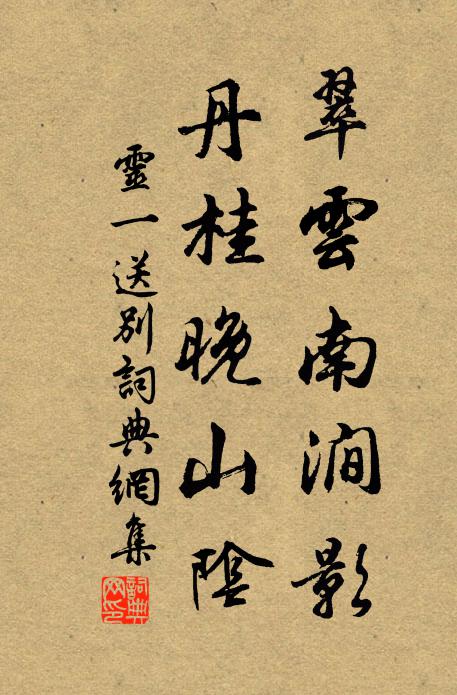 翠雲南澗影
丹桂晚山陰
靈一送別詞典網集
詞典网印